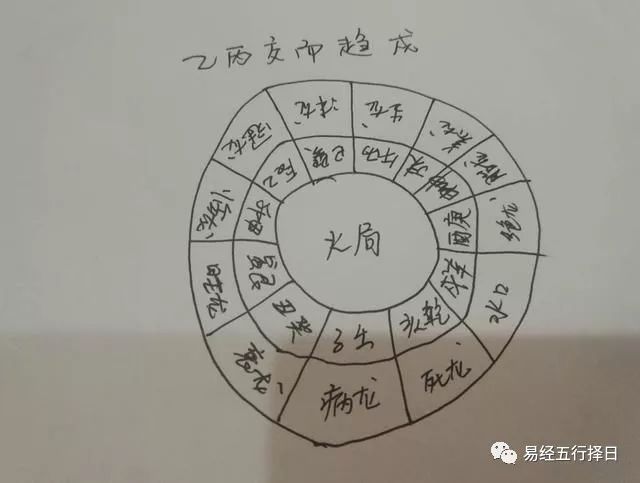 乙丙交而趋戌
冠龙
沐龙
生龙
养龙
胎龙
绝龙
水口
死龙
病龙
衰龙
旺龙
临龙
辰乙
巳巽
午丙
酉庚
戌辛
亥乾
子壬
丑癸
寅艮
卯甲
火局
易经五行择日